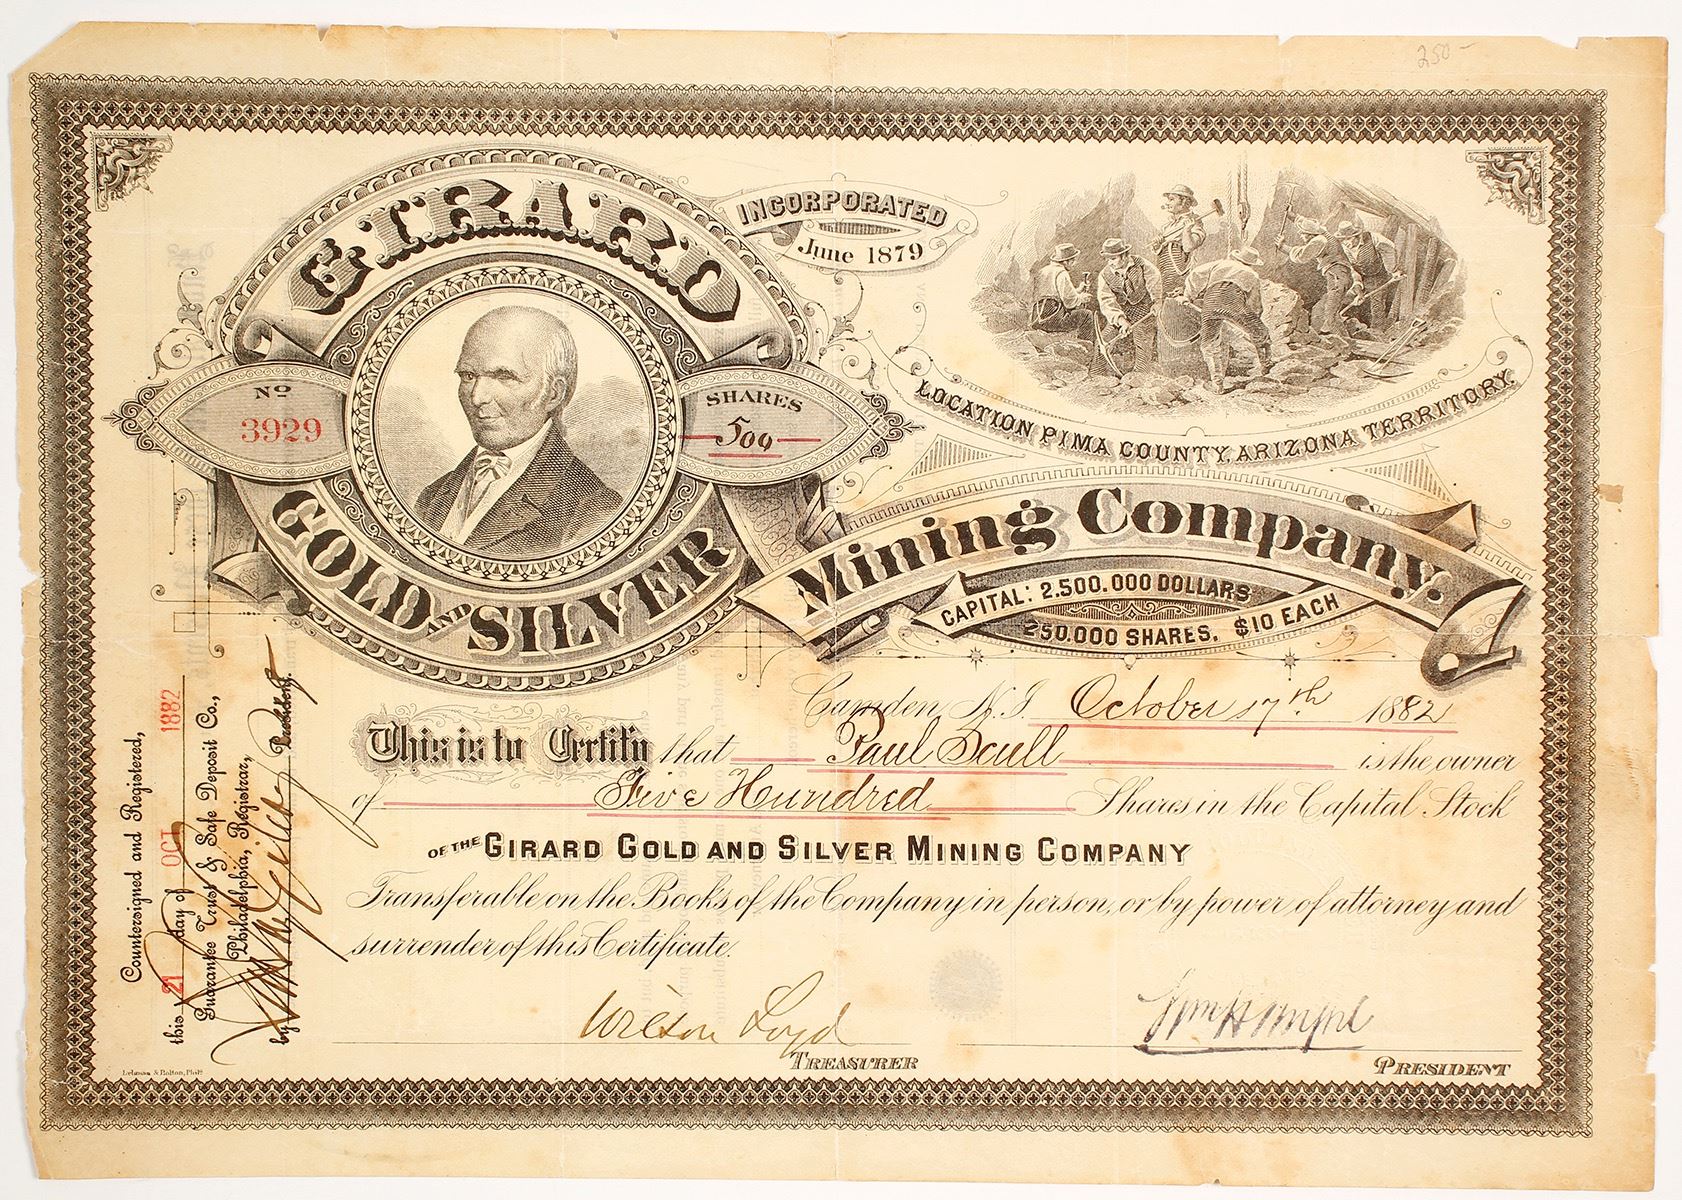 250-
GIRARD
INCORPORATED
June 1879
No
3929
SHARES
500
GOLD AND SILVER
LOCATION PIMA COUNTY, ARIZONA TERRITORY.
Mining Company.
CAPITAL: 2.500.000 DOLLARS
250.000 SHARES. $10 EACH
Camden, N.J. October 17th 1882
This is to Certify that Paul Scull is the owner
of Five Hundred Shares in the Capital Stock
OF THE GIRARD GOLD AND SILVER MINING COMPANY
Transferable on the Books of the Company in person, or by power of attorney and
surrender of this Certificate.
Wilson Loyd
TREASURER
PRESIDENT
Countersigned and Registered,
this 21 day of OCT 1882
Guarantee Trust & Safe Deposit Co.,
Philadelphia, Registrar,
by
President.
Lehman & Bolton, Phila